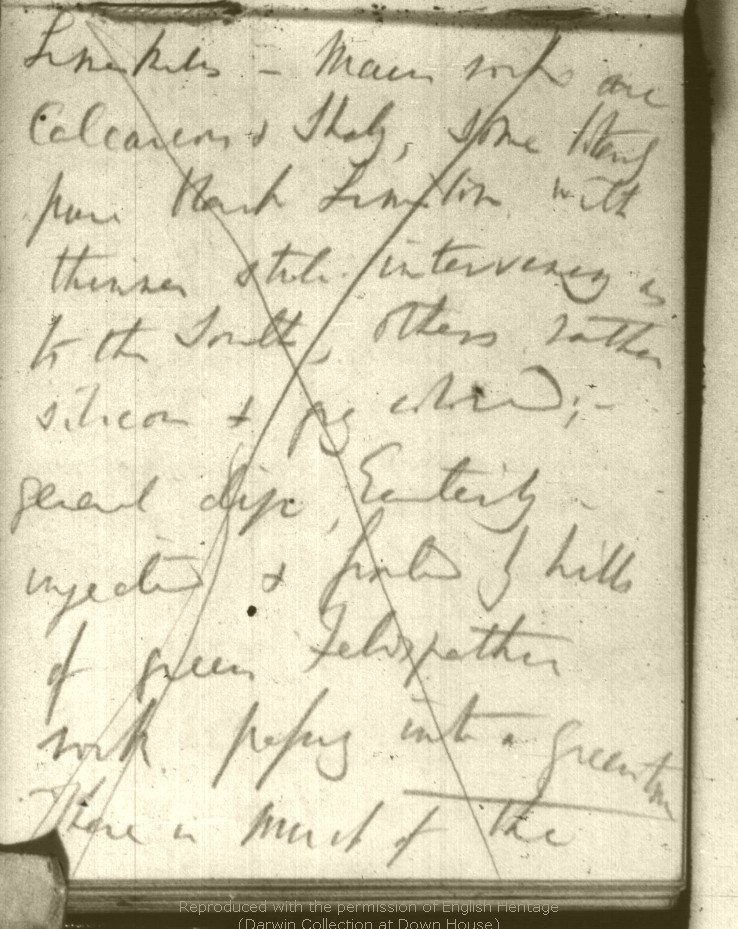 Limekilns – Main rocks are
Calcareous & Shaly, some being
pure black Limestone with
thinner strata intervening as
to the South, others rather
silicious & grey colored; –
general dip, Easterly –
injected & fronted by hills
of green Feldspathic
rock passing into a greenstone
There is much of the
Reproduced with the permission of English Heritage
(Darwin Collection at Down House)